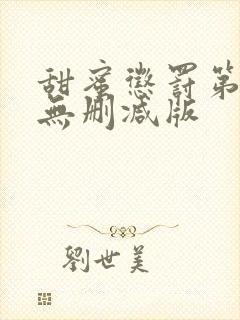 甜蜜懲罰第
無删减版
劉世美